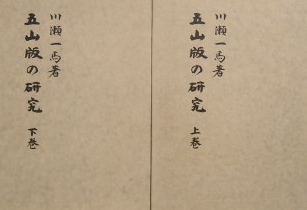 川瀬一馬著
五山版の研究
上巻
川瀬一馬著
五山版の研究
下巻